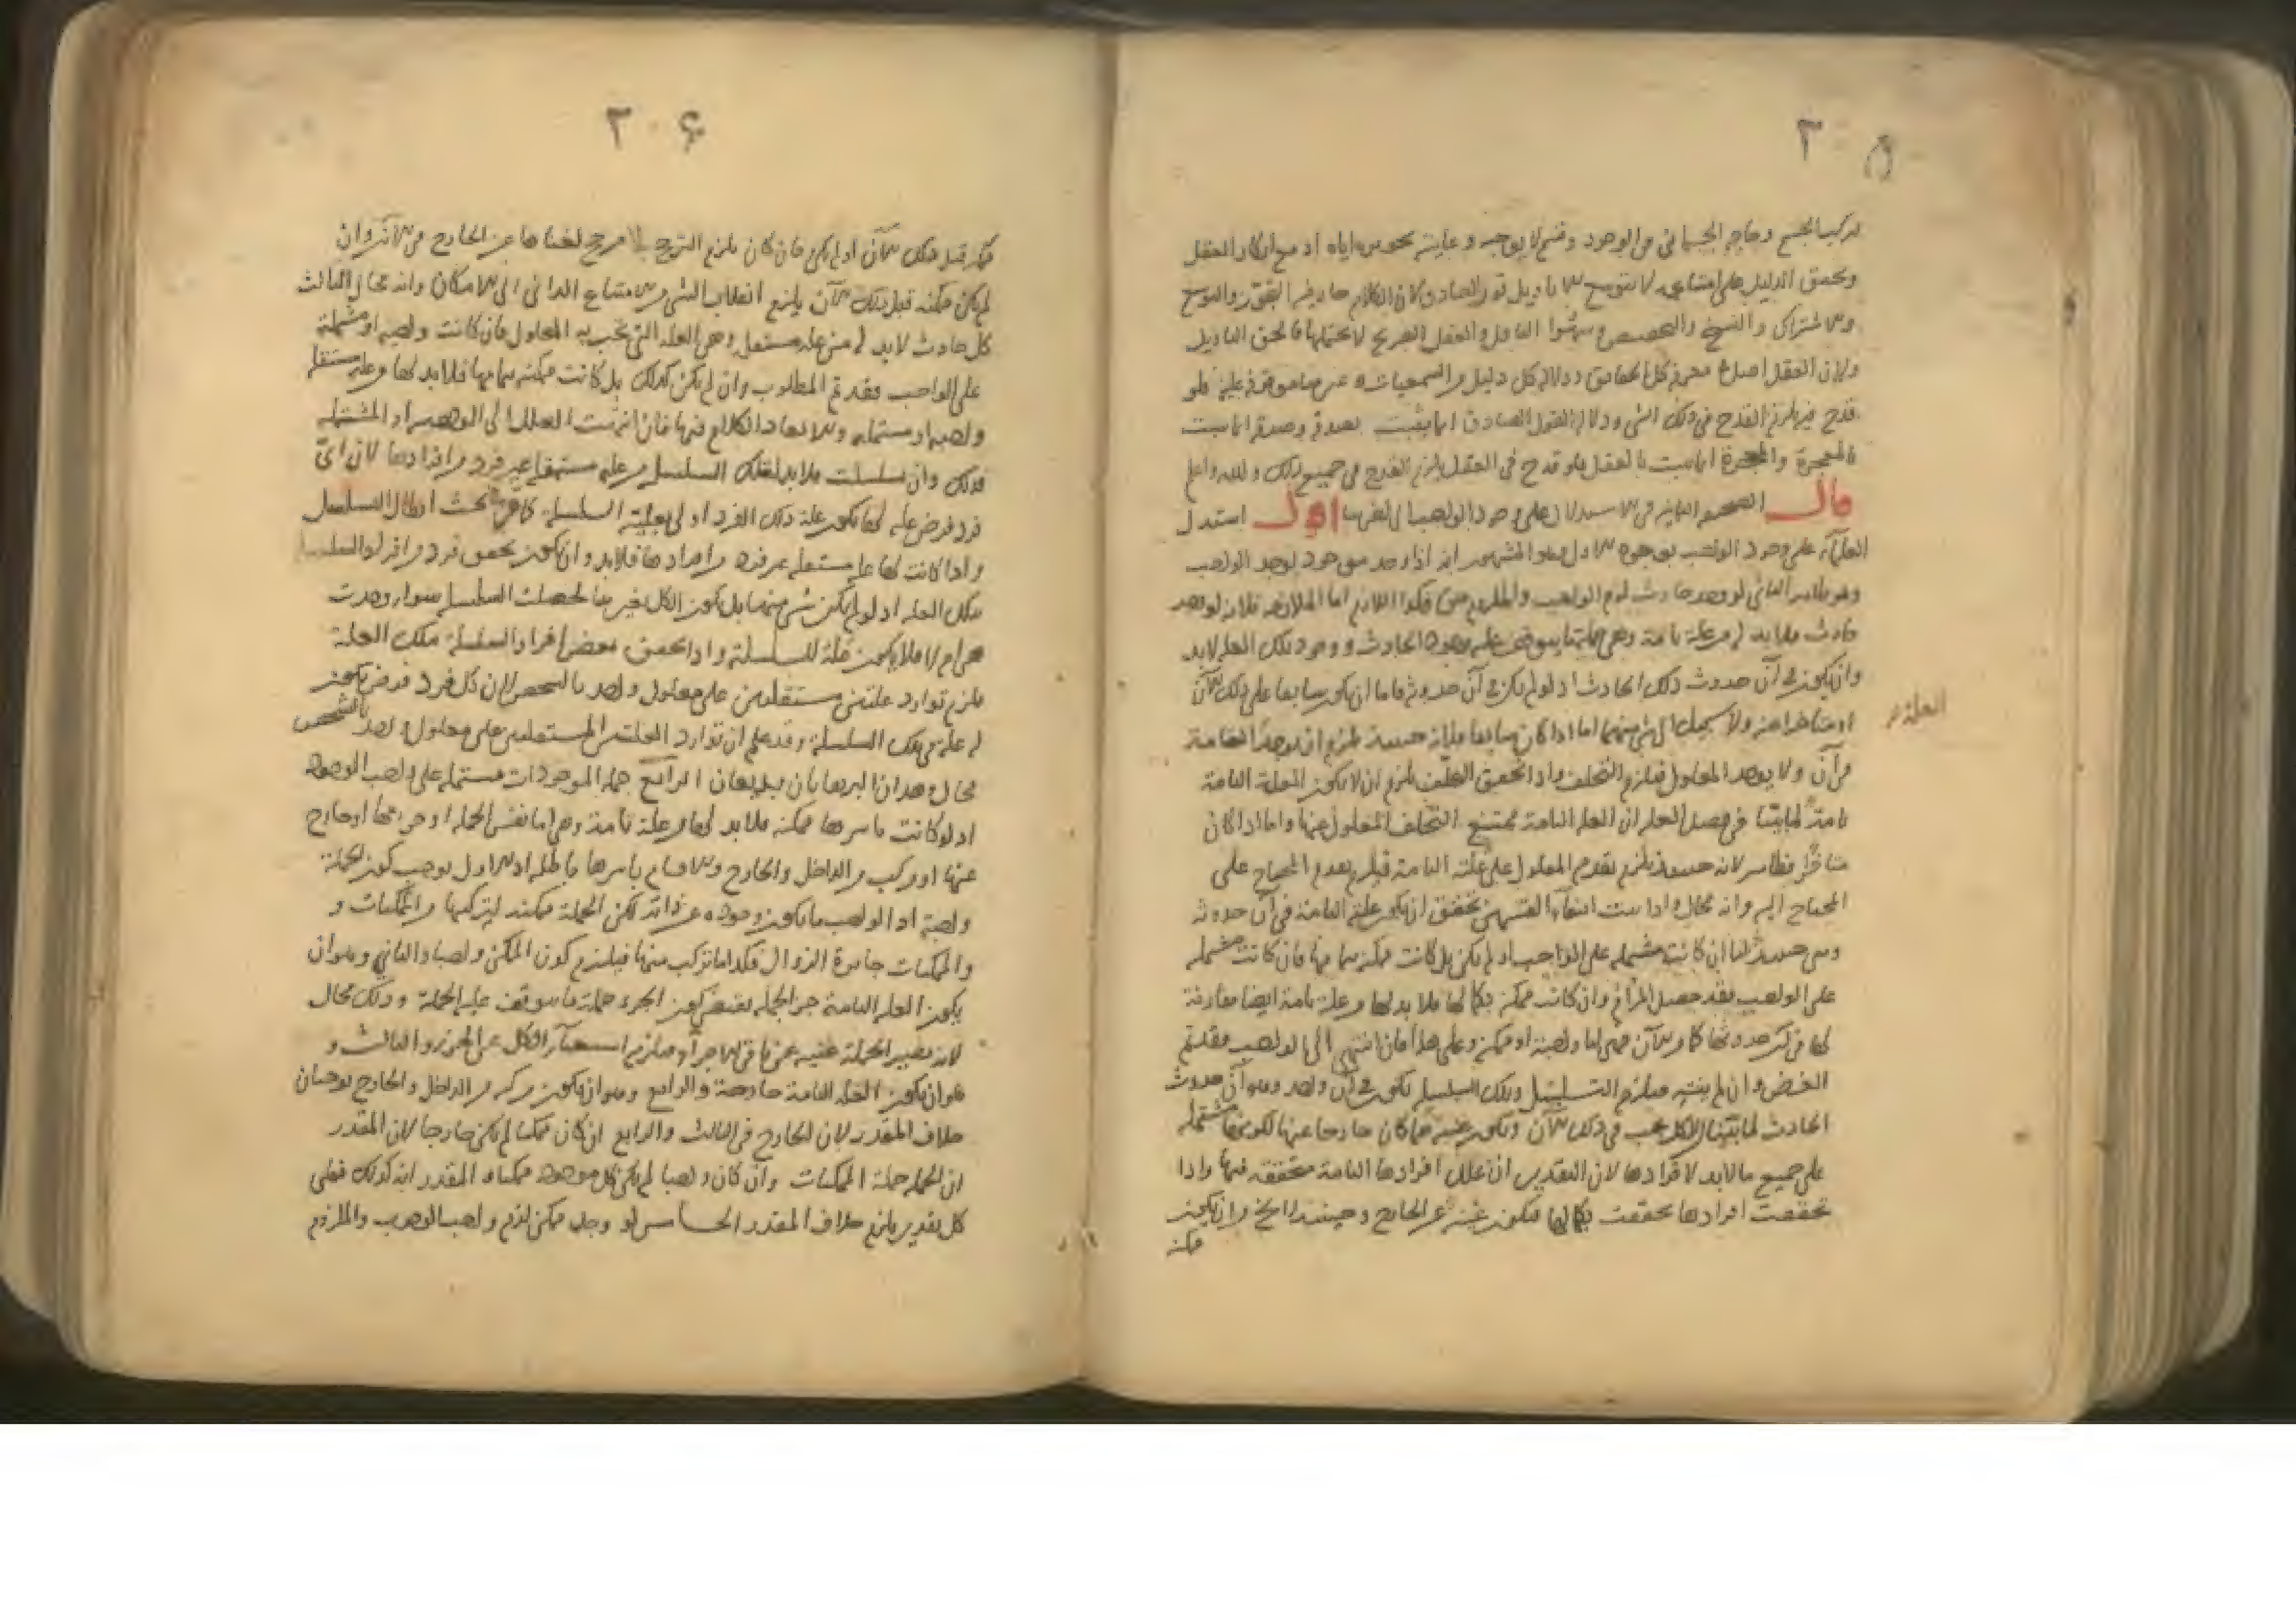 ٢٠٥
وتحقق الدليل على امتناعه لا يتوسع الا تاويل قول الصادق لان الكلام
والاشتراك والنسخ والتخصيص العقل الصريح لا يحتملها
ولان العقل اصل كل دليل من السمعيات
قدح فيه يلزم القدح في ذلك الشي ودلالة القول الصادق انما يثبت بصدقه وصدقه انما يثبت
بالمعجزة والمعجزة انما يثبت بالعقل فلو قدح في العقل يلزم القدح في جميع ذلك والله اعلم
قال الاستدلال على وجود الواجب لو اقول استدل
العلماء على وجود الواجب بوجوه الاول وهو المشهور انه اذا وجد موجود يوجد الواجب
لو وجد حادث لزم الواجب والملزوم حق فكذا اللازم اما الملازمة فلانه لو وجد
حادث فلا بد له من علة تامة وهي جملة ما يتوقف عليه وجود الحادث ووجود تلك العلة لا بد
وان يكون في آن حدوث ذلك الحادث اذ لو لم يكن في آن حدوثه فاما ان يكون سابقا على ذلك الآن
او متاخرا عنه ولا سبيل الى شي منهما اما اذا كان سابقا فلانه حينئذ يلزم ان يوجد التامة
العلة
في آن ولا يوجد المعلول فيلزم التخلف واذا تحقق التخلف يلزم ان لا يكون العلة التامة
تامة لما بيّنا في فصل العلة ان العلة التامة يمتنع التخلف المعلول عنها واما اذا كان
متاخرا فظاهر لانه حينئذ يلزم تقدم المعلول على علته التامة فيلزم تقدم المحتاج على
المحتاج اليه وانه محال واذا ثبت انتفاء القسمين تحقق ان يكون علته التامة في آن حدوثه
وهي حينئذ اما ان كانت مشتملة على الواجب او لم يكن بل كانت ممكنة بتمامها فان كانت مشتملة
على الواجب فقد حصل المرام وان كانت ممكنة بكمالها فلا بد لها من علة تامة ايضا مقارنة
لها في آن حدوثها كما من الآن فهي اما واجبة او ممكنة وعلى هذا فان انتهى الى الواجب فقد تم
الغرض وان لم ينته فيلزم التسلسل وتلك السلسلة تكون في آن واحد وهو آن حدوث
الحادث لما بيّنا ان الكل يجب في ذلك الآن وتكون غنية عما كان خارجا عنها لكونها مشتملة
على جميع ما لا بد لافرادها لان التقدير ان علل افرادها التامة متحققة فيها واذا
تحققت افرادها تحققت بكمالها فتكون غنية عن الخارج وحينئذ لا يخ من ان يكون
ممكنة
٢٠۶
ممكنة قبل ذلك الآن او لم يكن فان كان يلزم الترجح بلا مرجح لغناها عن الخارج في الآنين وان
لم يكن ممكنة قبل ذلك الآن يلزم انقلاب الشي من الامتناع الذاتي الى الامكان وانه محال الثالث
كل حادث لا بد له من علة مستقلة وهي العلة التي يجب به المعلول فان كانت واجبة او مشتملة
على الواجب فقد تم المطلوب وان لم يكن كذلك بل كانت ممكنة بتمامها فلا بد لها من علة مستقلة
واجبة او مشتملة والا يعاد الكلام فيها فان انتهت العلل الى الواجب او المشتملة
فذلك وان تسلسلت فلا بد لتلك السلسلة من علة مستقلة غير فرد من افرادها لان اي
فرد فرض علة لها يكون علة ذلك الفرد اولى بعلية السلسلة كما مر في بحث ابطال التسلسل
واذا كانت لها علة مستقلة غير فرد من افرادها فلا بد وان يكون تحقق فرد من افراد السلسلة
بتلك العلة اذ لو لم يكن شي منها بل يكون الكل بغيرها لحصلت السلسلة سواء وجدت
هي ام لا فلا يكون علة للسلسلة واذا تحقق بعض افراد السلسلة بتلك العلة
يلزم توارد علتين مستقلتين على معلول واحد بالشخص لان كل فرد فرض يكون
له علة في تلك السلسلة وقد علم ان توارد العلتين المستقلتين على معلول واحد بالشخص
محال وهذان البرهانان بديعان الرابع جملة الموجودات مشتملة على واجب الوجود
اذ لو كانت باسرها ممكنة فلا بد لها من علة تامة وهي اما نفس الجملة او جزءها او خارج
عنها او مركب من الداخل والخارج والاقسام باسرها باطلة اذ الاول يوجب كون الجملة
واجبة اذ الواجب ما يكون وجوده من ذاته لكن الجملة ممكنة لتركبها من الممكنات و
والممكنات جايزة الزوال فكذا ما تركب منها فيلزم كون الممكن واجبا والثاني وهو ان
يكون العلة التامة جزء الجملة يقتضي كون الجزء جملة ما يتوقف عليه الجملة وذلك محال
لانه يصير الجملة غنية عن باقي الاجزاء فيلزم استغناء الكل عن الجزء والثالث و
هو ان يكون العلة التامة خارجة والرابع وهو ان يكون مركبة من الداخل والخارج يوجبان
خلاف المقدر لان الخارج في الثالث والرابع ان كان ممكنا لم يكن خارجا لان المقدر
ان الجملة جملة الممكنات وان كان واجبا لم يكن كل موجود ممكنا والمقدر انه كذلك فعلى
كل تقدير يلزم خلاف المقدر الخامس لو وجد ممكن لزم واجب الوجود والملزوم